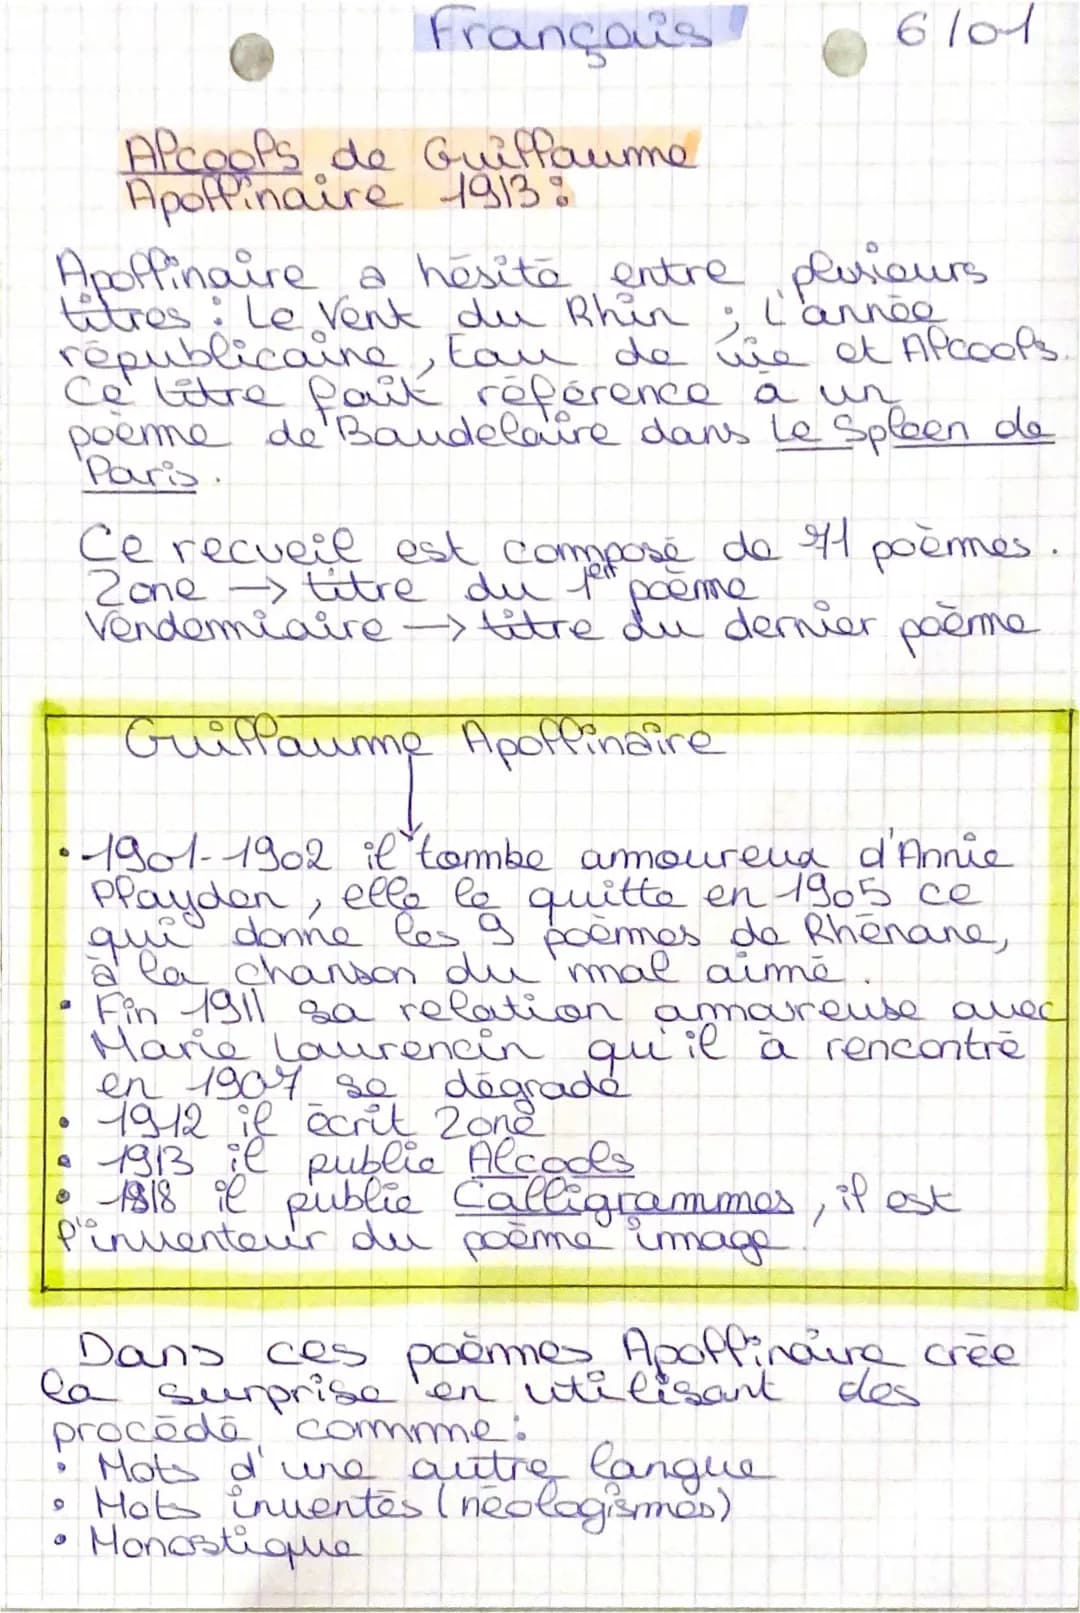 Français
6/01
Alcools de Guillaume
Apollinaire 1913 :
Apollinaire a hésité entre plusieurs
titres : Le Vent du Rhin ; L'année
républicaine, Eau de vie et Alcools.
Ce titre fait référence à un
poème de Baudelaire dans Le Spleen de
Paris.
Ce recueil est composé de 71 poèmes.
Zone → titre du 1er poème
Vendémiaire → titre du dernier poème
Guillaume Apollinaire
• 1901-1902 il tombe amoureux d'Annie
Playden, elle le quitte en 1905 ce
qui donne les 9 poèmes de Rhénane,
à la chanson du mal aimé.
• Fin 1911 sa relation amoureuse avec
Marie Laurencin qu'il à rencontré
en 1907 se dégrade
• 1912 il écrit Zone
• 1913 il publie Alcools
• 1918 il publie Calligrammes, il est
l'inventeur du poème image.
Dans ces poèmes Apollinaire crée
la surprise en utilisant des
procédé comme :
• Mots d'une autre langue
• Mots inventés (néologismes)
• Monostique